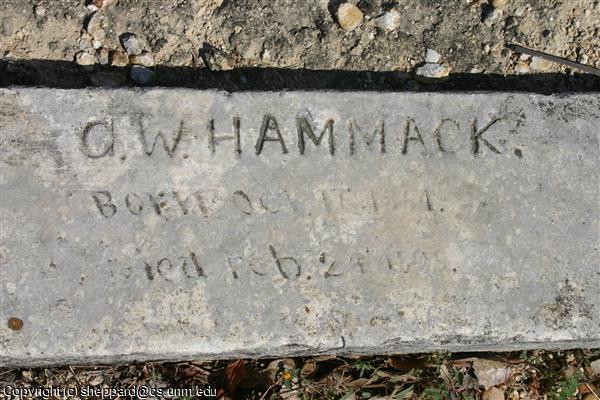 a. W. HAMMACK.
BORN Oct.
Died Feb. 24
Copyright (c) sheppard@cs.unm.edu